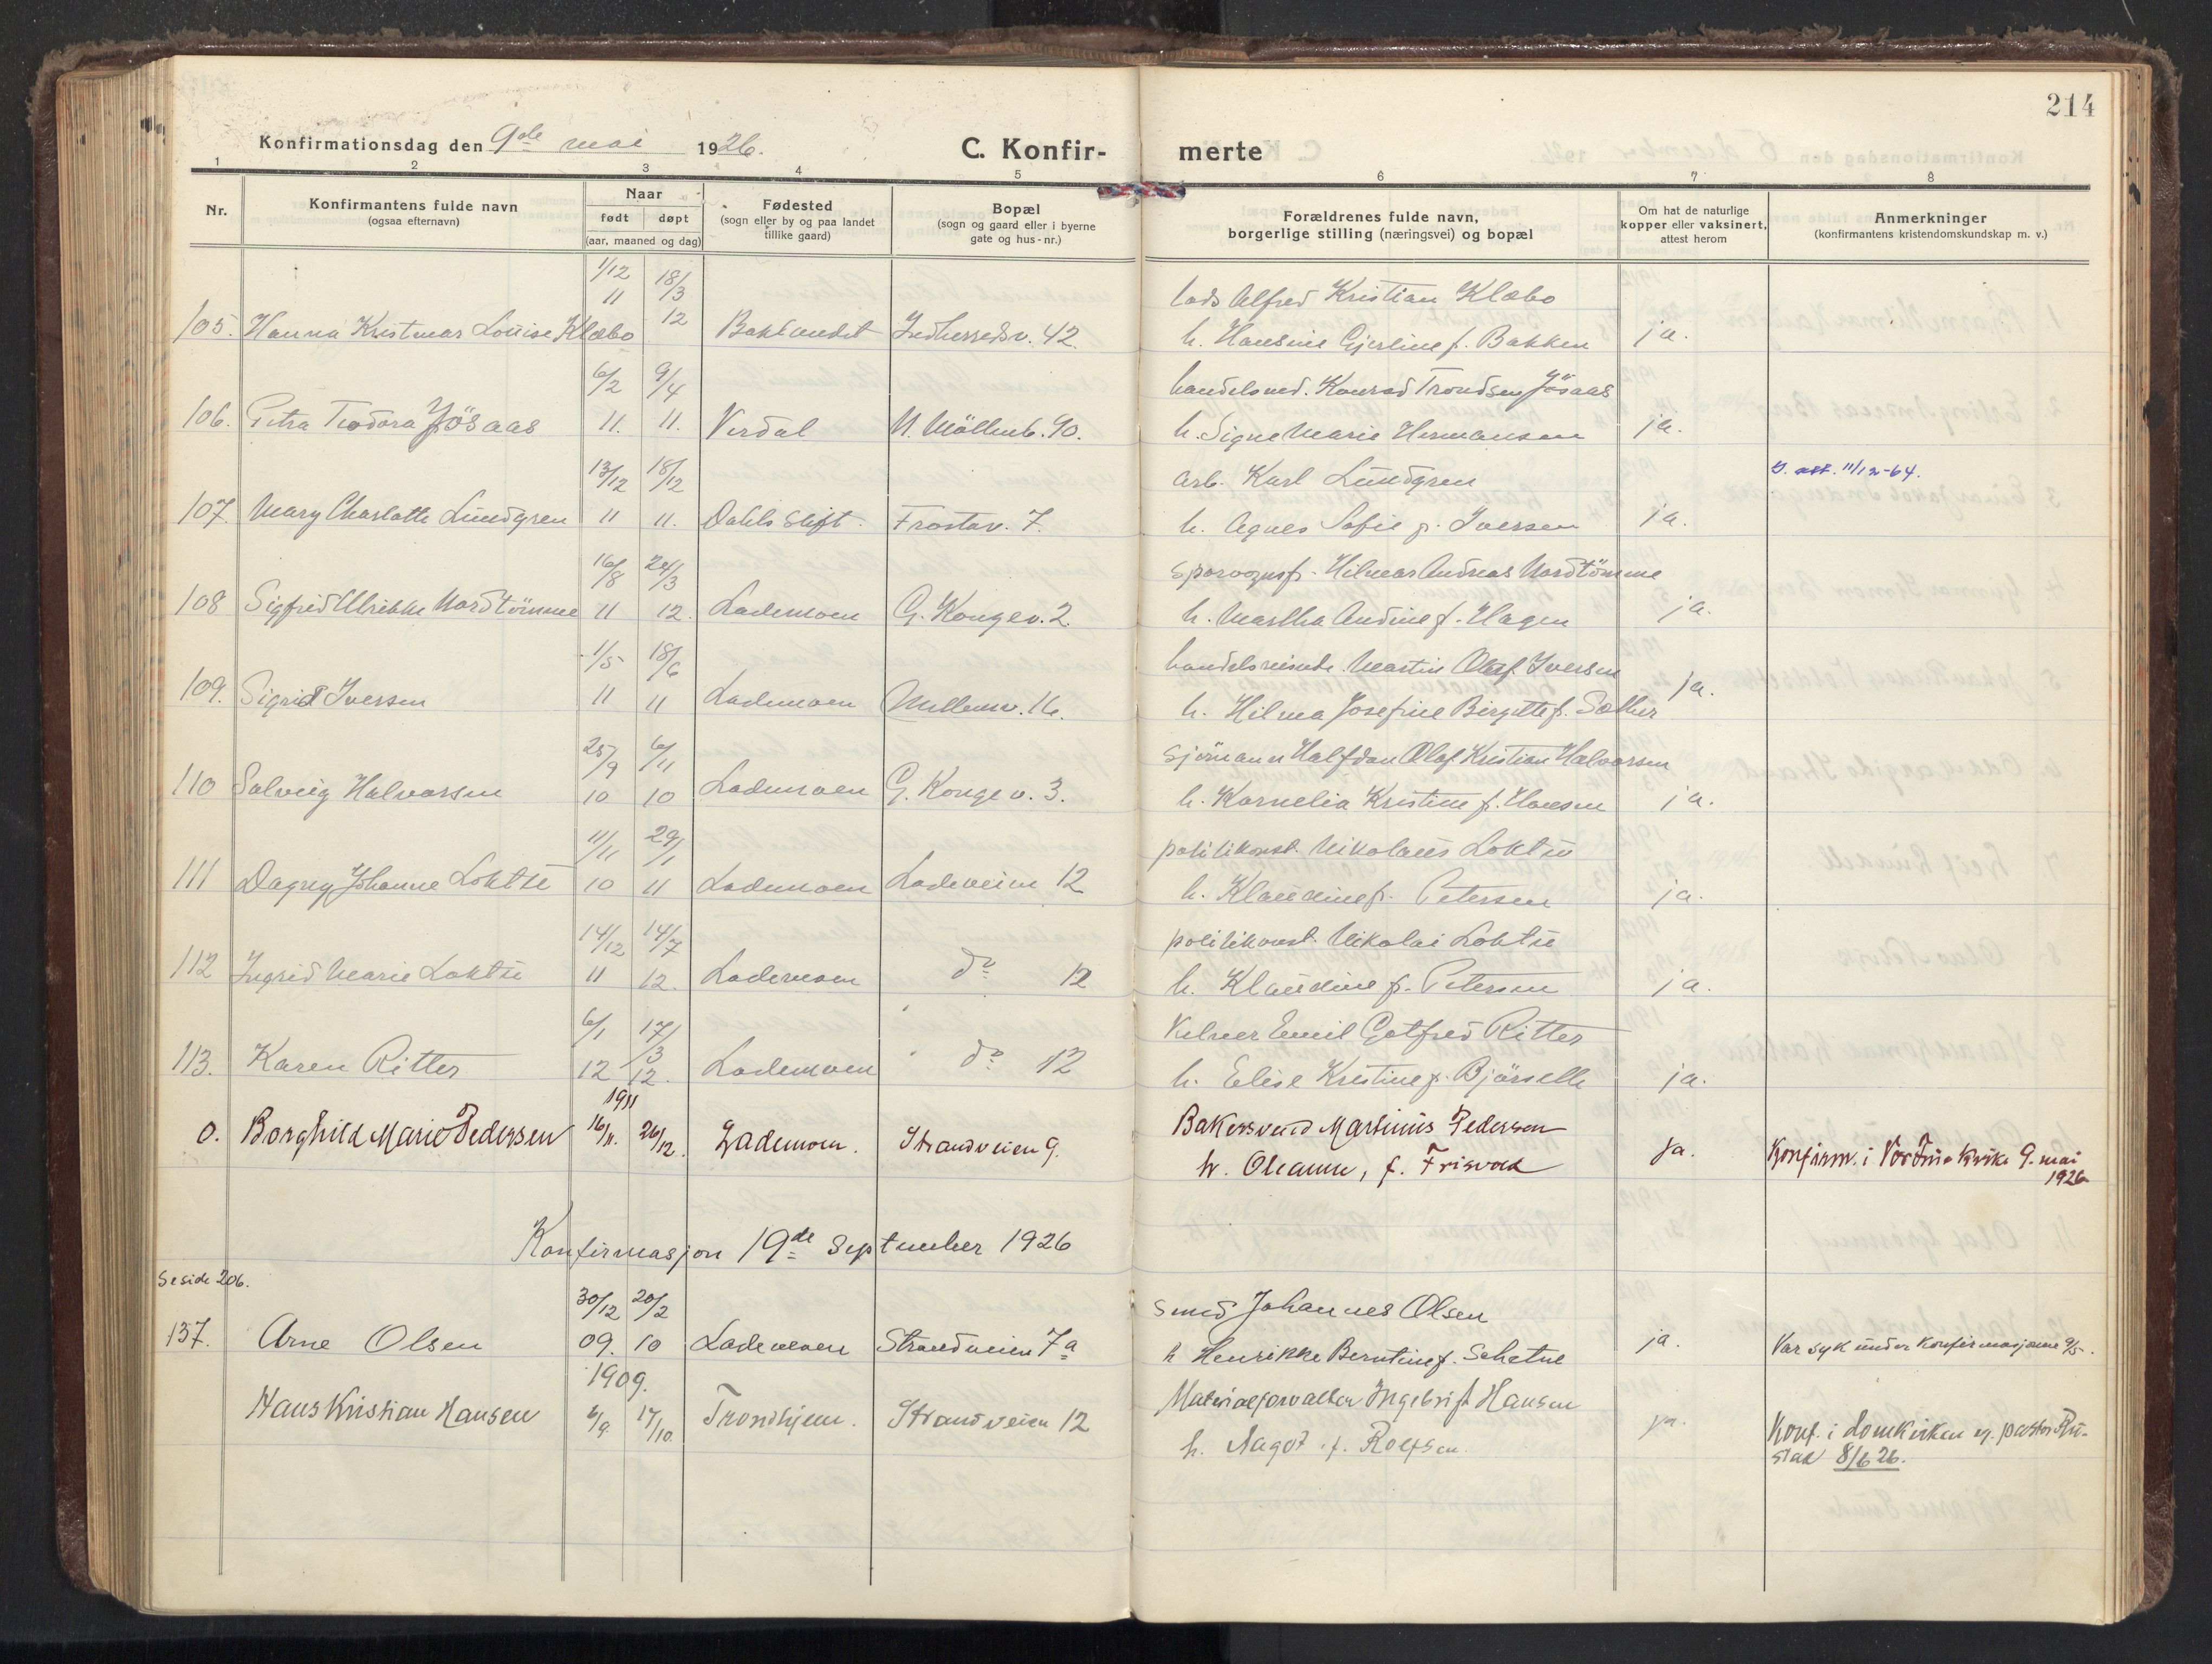 214
Konfirmationsdag den 9de mai 1926.
C. Konfir- merte
1 2 3 4 5 6 7 8
Nr.
Konfirmantens fulde navn
(ogsaa efternavn)
Naar
født døpt
(aar, maaned og dag)
Fødested
(sogn eller by og paa landet
tillike gaard)
Bopæl
(sogn og gaard eller i byerne
gate og hus-nr.)
Forældrenes fulde navn,
borgerlige stilling (næringsvei) og bopæl
Om hat de naturlige
kopper eller vaksinert,
attest herom
Anmerkninger
(konfirmantens kristendomskundskap m. v.)
1/12 18/3 lods Alfred Kristian Klæbo
105. Hanna Kristmar Louise Klæbo 11 12 Baklandet Indherredsv. 42. h. Hansine Gjertine f. Bakken ja.
6/2 9/4 handelsmd. Konrad Trondsen Jösaas
106. Petra Teodora Jösaas 11. 11. Verdal N. Möllenb. 90. h. Signe Marie Hermansen ja.
13/12 18/12 Arb. Karl Lundgren D. att. 11/12-64.
107. Mary Charlotte Lundgren 11 11. Dahls Stift. Frostav. 7. h. Agnes Sofie f. Iversen ja.
16/8 24/3 Sporvognsf. Hilmar Andreas Nordtömme
108 Sigfrid Ulrikke Nordtömme 11 12. Lademoen G. Kongev. 2. h. Martha Andine f. Hagen ja.
1/5 18/6 handelsreisende Martin Olaf Iversen
109. Sigrid Iversen 11 11 Lademoen Mellemv. 16. h. Hilma Josefine Birgitte f. Sæther ja.
25/9 6/11 Sjömann Halfdan Olaf Kristian Halvorsen
110 Solveig Halvorsen 10 10 Lademoen G. Kongev. 3. h. Kornelia Kristine f. Hansen ja.
11/11 29/1 politikonst. Nikolaus Loktu
111 Dagny Johanne Loktu 10 11 Lademoen Ladeveien 12 h. Klaudine f. Petersen ja.
14/12 14/7 politikonst. Nikolai Loktu
112 Ingrid Marie Loktu 11 12. Lademoen do 12 h. Klaudine f. Petersen ja.
6/1 17/3 Kelner Emil Gotfred Ritter
113. Karen Ritter 12 12. Lademoen do 12 h. Elise Kristine f. Björselle ja.
1911
0. Borghild Marie Pedersen 16/11. 26/12. Lademoen. Strandveien 9. Bakersvend Martinus Pedersen
h. Oleanne, f. Frisvold ja. Konfirm. i Vor Frue Kirke 9. mai
1926
Konfirmasjon 19de September 1926
Se side 206.
30/12 20/2 Smed Johannes Olsen
137. Arne Olsen 09. 10 Lademoen Strandveien 7a h Henrikke Berntine f. Schetne ja. Var syk under konfirmasjonen 9/5.
1909.
Hans Kristian Hansen 6/9. 17/10. Trondhjem. Strandveien 12 Materialforvalter Ingebrigt Hansen
h. Aagot f. Rolfsen. ja. Konf. i Domkirken av pastor Ru-
stad 8/6 26.